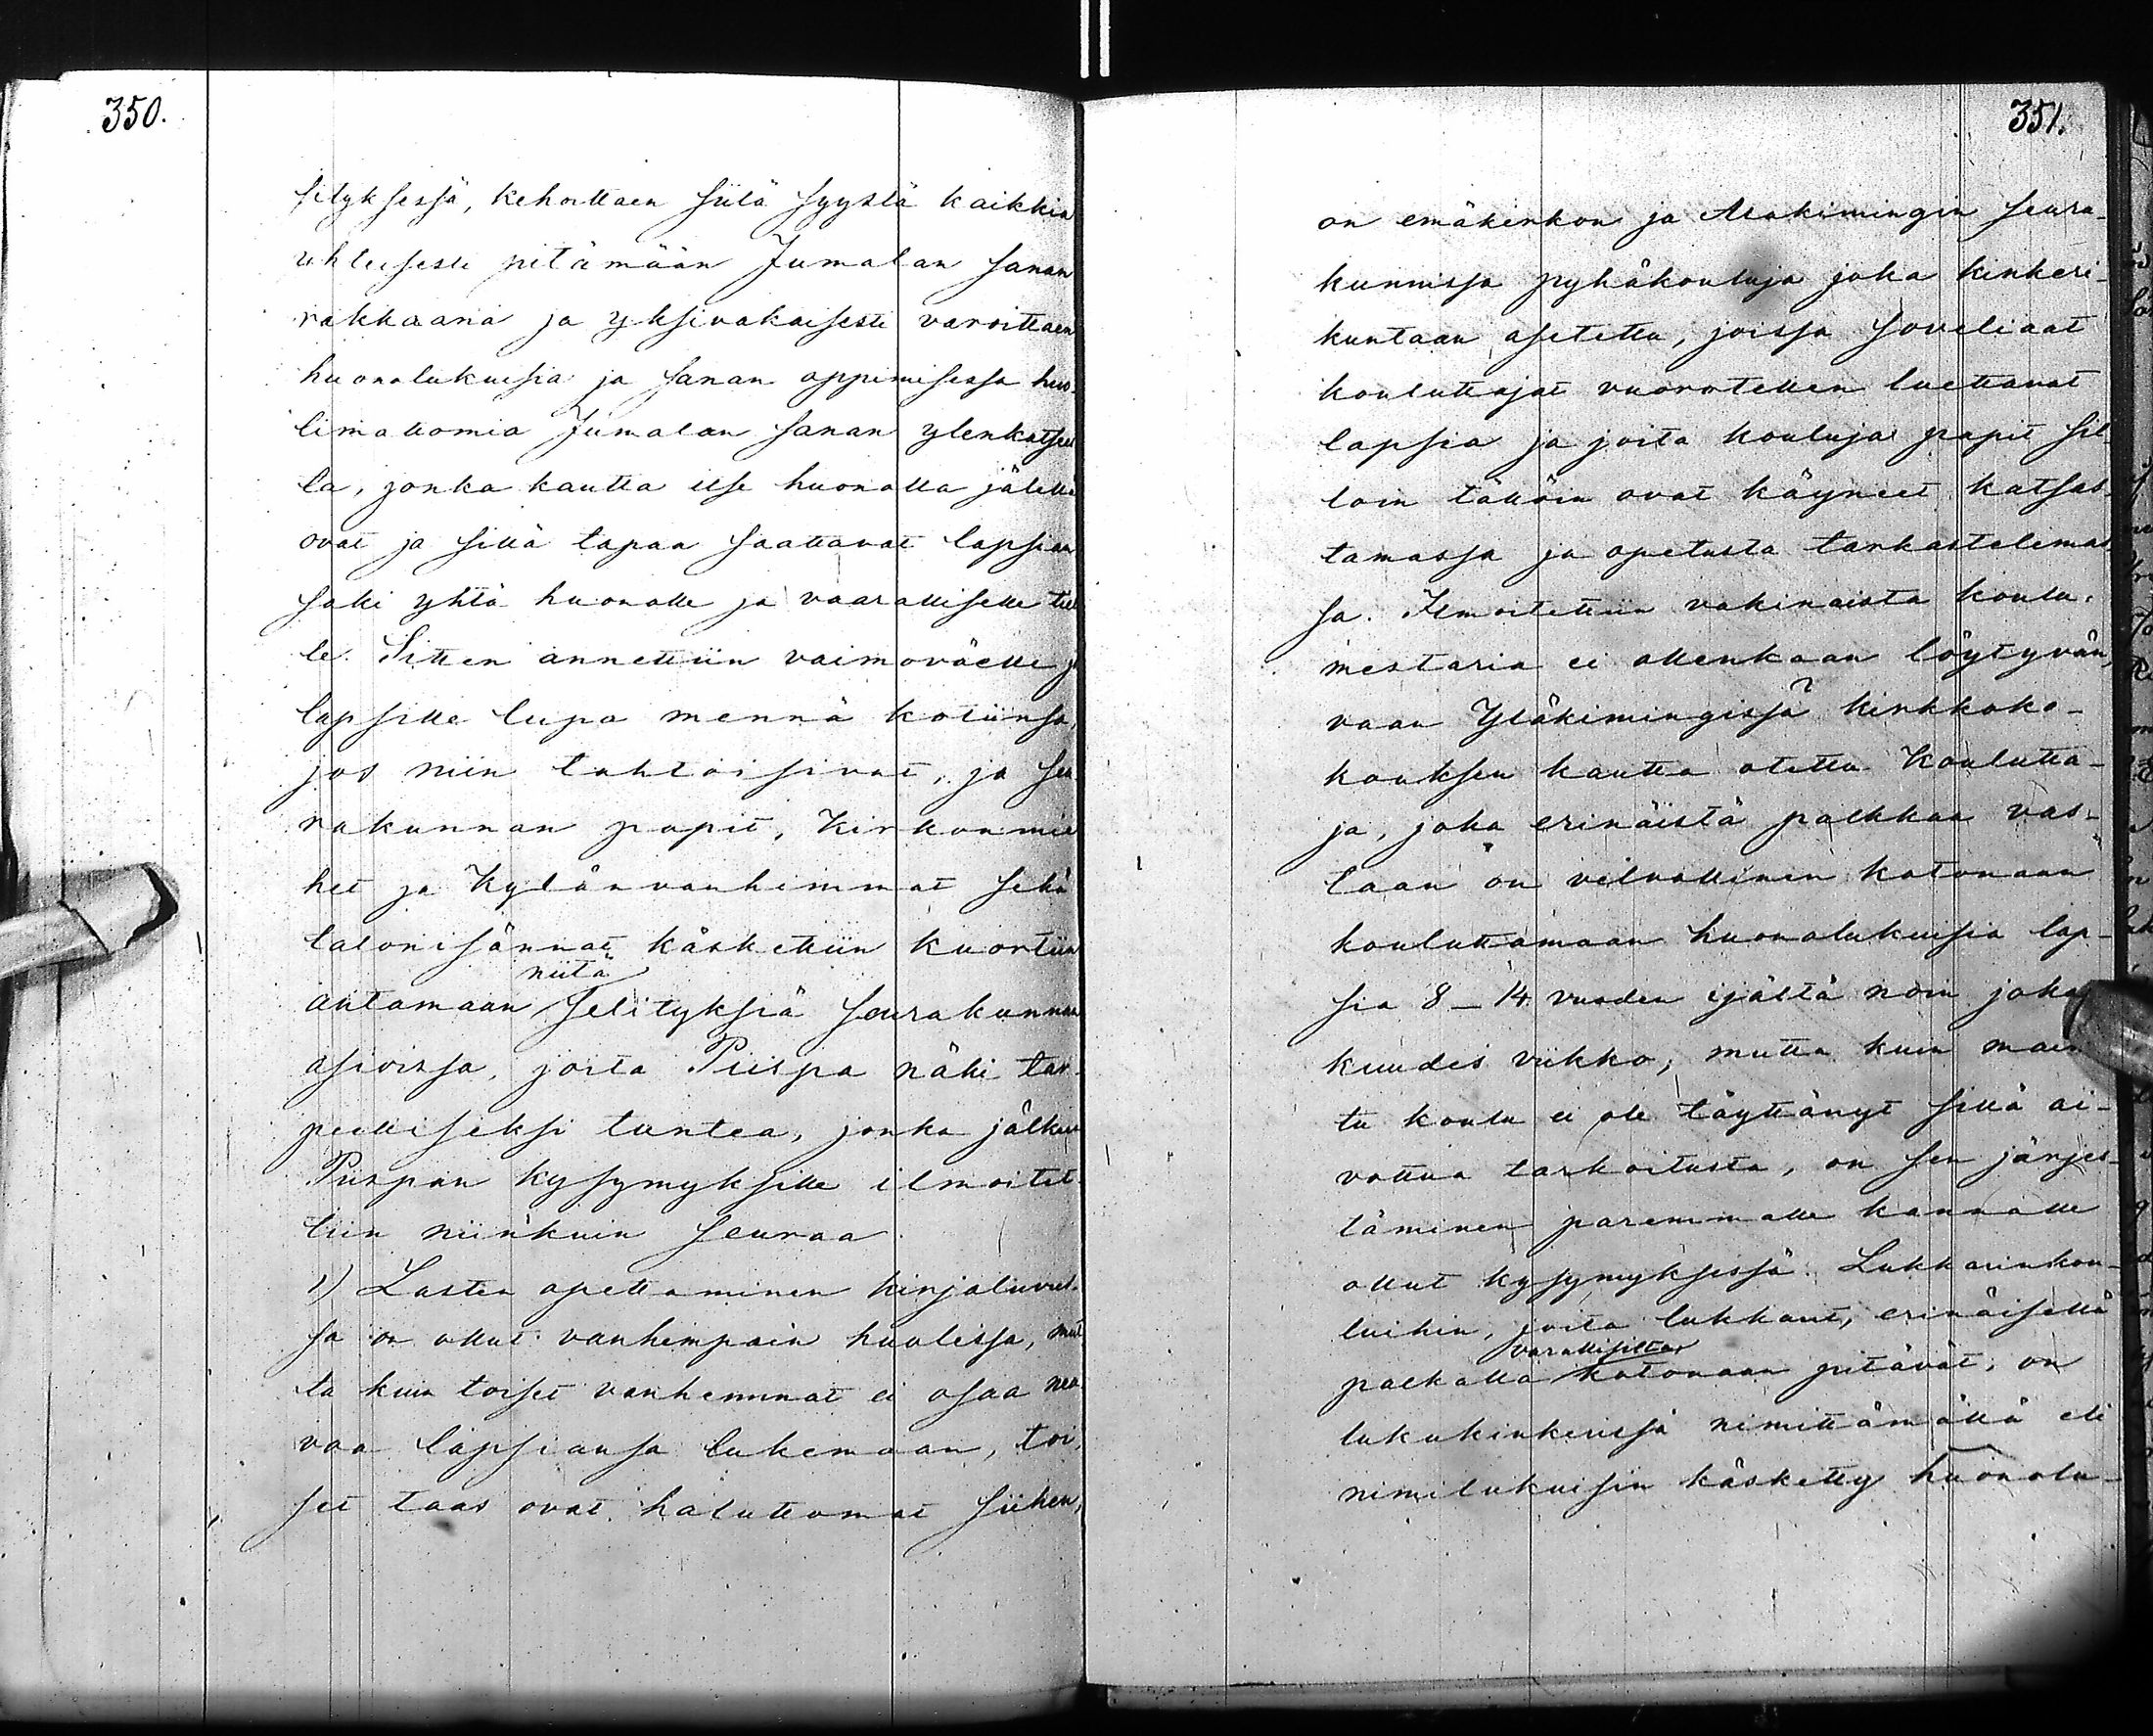 350.
sityksessä, kehoittaen siitä syystä kaikkia
yhteisesti pitämään Jumalan sanan
rakkaana ja yksivakaisesti varoittaen
huonolukuisia ja sanan oppimisessa huo-
limattomia Jumalan sanan ylenkatseel
la, jonka kautta itse huonolla jälellä
ovat ja sillä tapaa saattavat lapsian
saki yhtä huonolle ja vaaralliselle tiel
le. Sitten annettiin vaimoväelle ja
lapsille lupa mennä kotiinsa,
jos niin tahtoisivat, ja seu
rakunnan papit, Kirkonmie
het ja Kylänvanhimmat sekä
talonisännät käskettiin kuoriin
niitä
antamaan selityksiä seurakunnan
asioissa, joita Piispa näki tar-
peelliseksi tuntea, jonka jälkeen
Piispan kysymyksille ilmoitet-
tiin niinkuin seuraa.
1) Lasten opettaminen kirjaluvus-
sa on ollut vanhempain huolissa, mut
ta kuin toiset vanhemmat ei osaa neu-
voa lapsiansa lukemaan, toi-
set taas ovat haluttomat siihen,
351.
on emäkirkon ja Alakimingin seura-
kunnissa pyhäkouluja joka kinkeri-
kuntaan asetettu, joissa soveliaat
kouluttajat vuorotellen luettavat
lapsia ja joita kouluja papit sil-
loin tällöin ovat käyneet katsas-
tamassa ja opetusta tarkastelemas-
sa. Ilmoitettiin vakinaista koulu-
mestaria ei ollenkaan löytyvän,
vaan Yläkimingissä kirkkoko-
kouksen kautta otettu Koulutta-
ja, joka erinäistä palkkaa vas-
taan on velvollinen kotonaan
kouluttamaan huonolukuisia lap-
sia 8–14 vuoden ijältä noin joka
kuudes viikko; mutta kuin main
tu koulu ei ole täyttänyt sillä ai-
vottua tarkoitusta, on sen järjes-
täminen paremmalle kannalle
ollut kysymyksessä. Lukkarinkou-
luihin, joita lukkarit, erinäisellä
varallisilta
palkalla kotonaan pitävät, on
lukukinkerissä nimittämällä eli
nimilukuisin käsketty huonolu-